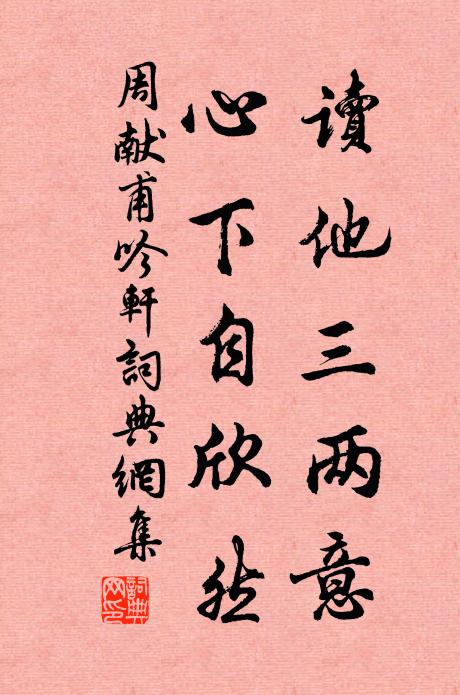 讀他三两意
心下自欣然
周献甫吟軒詞典網集
詞典
网印